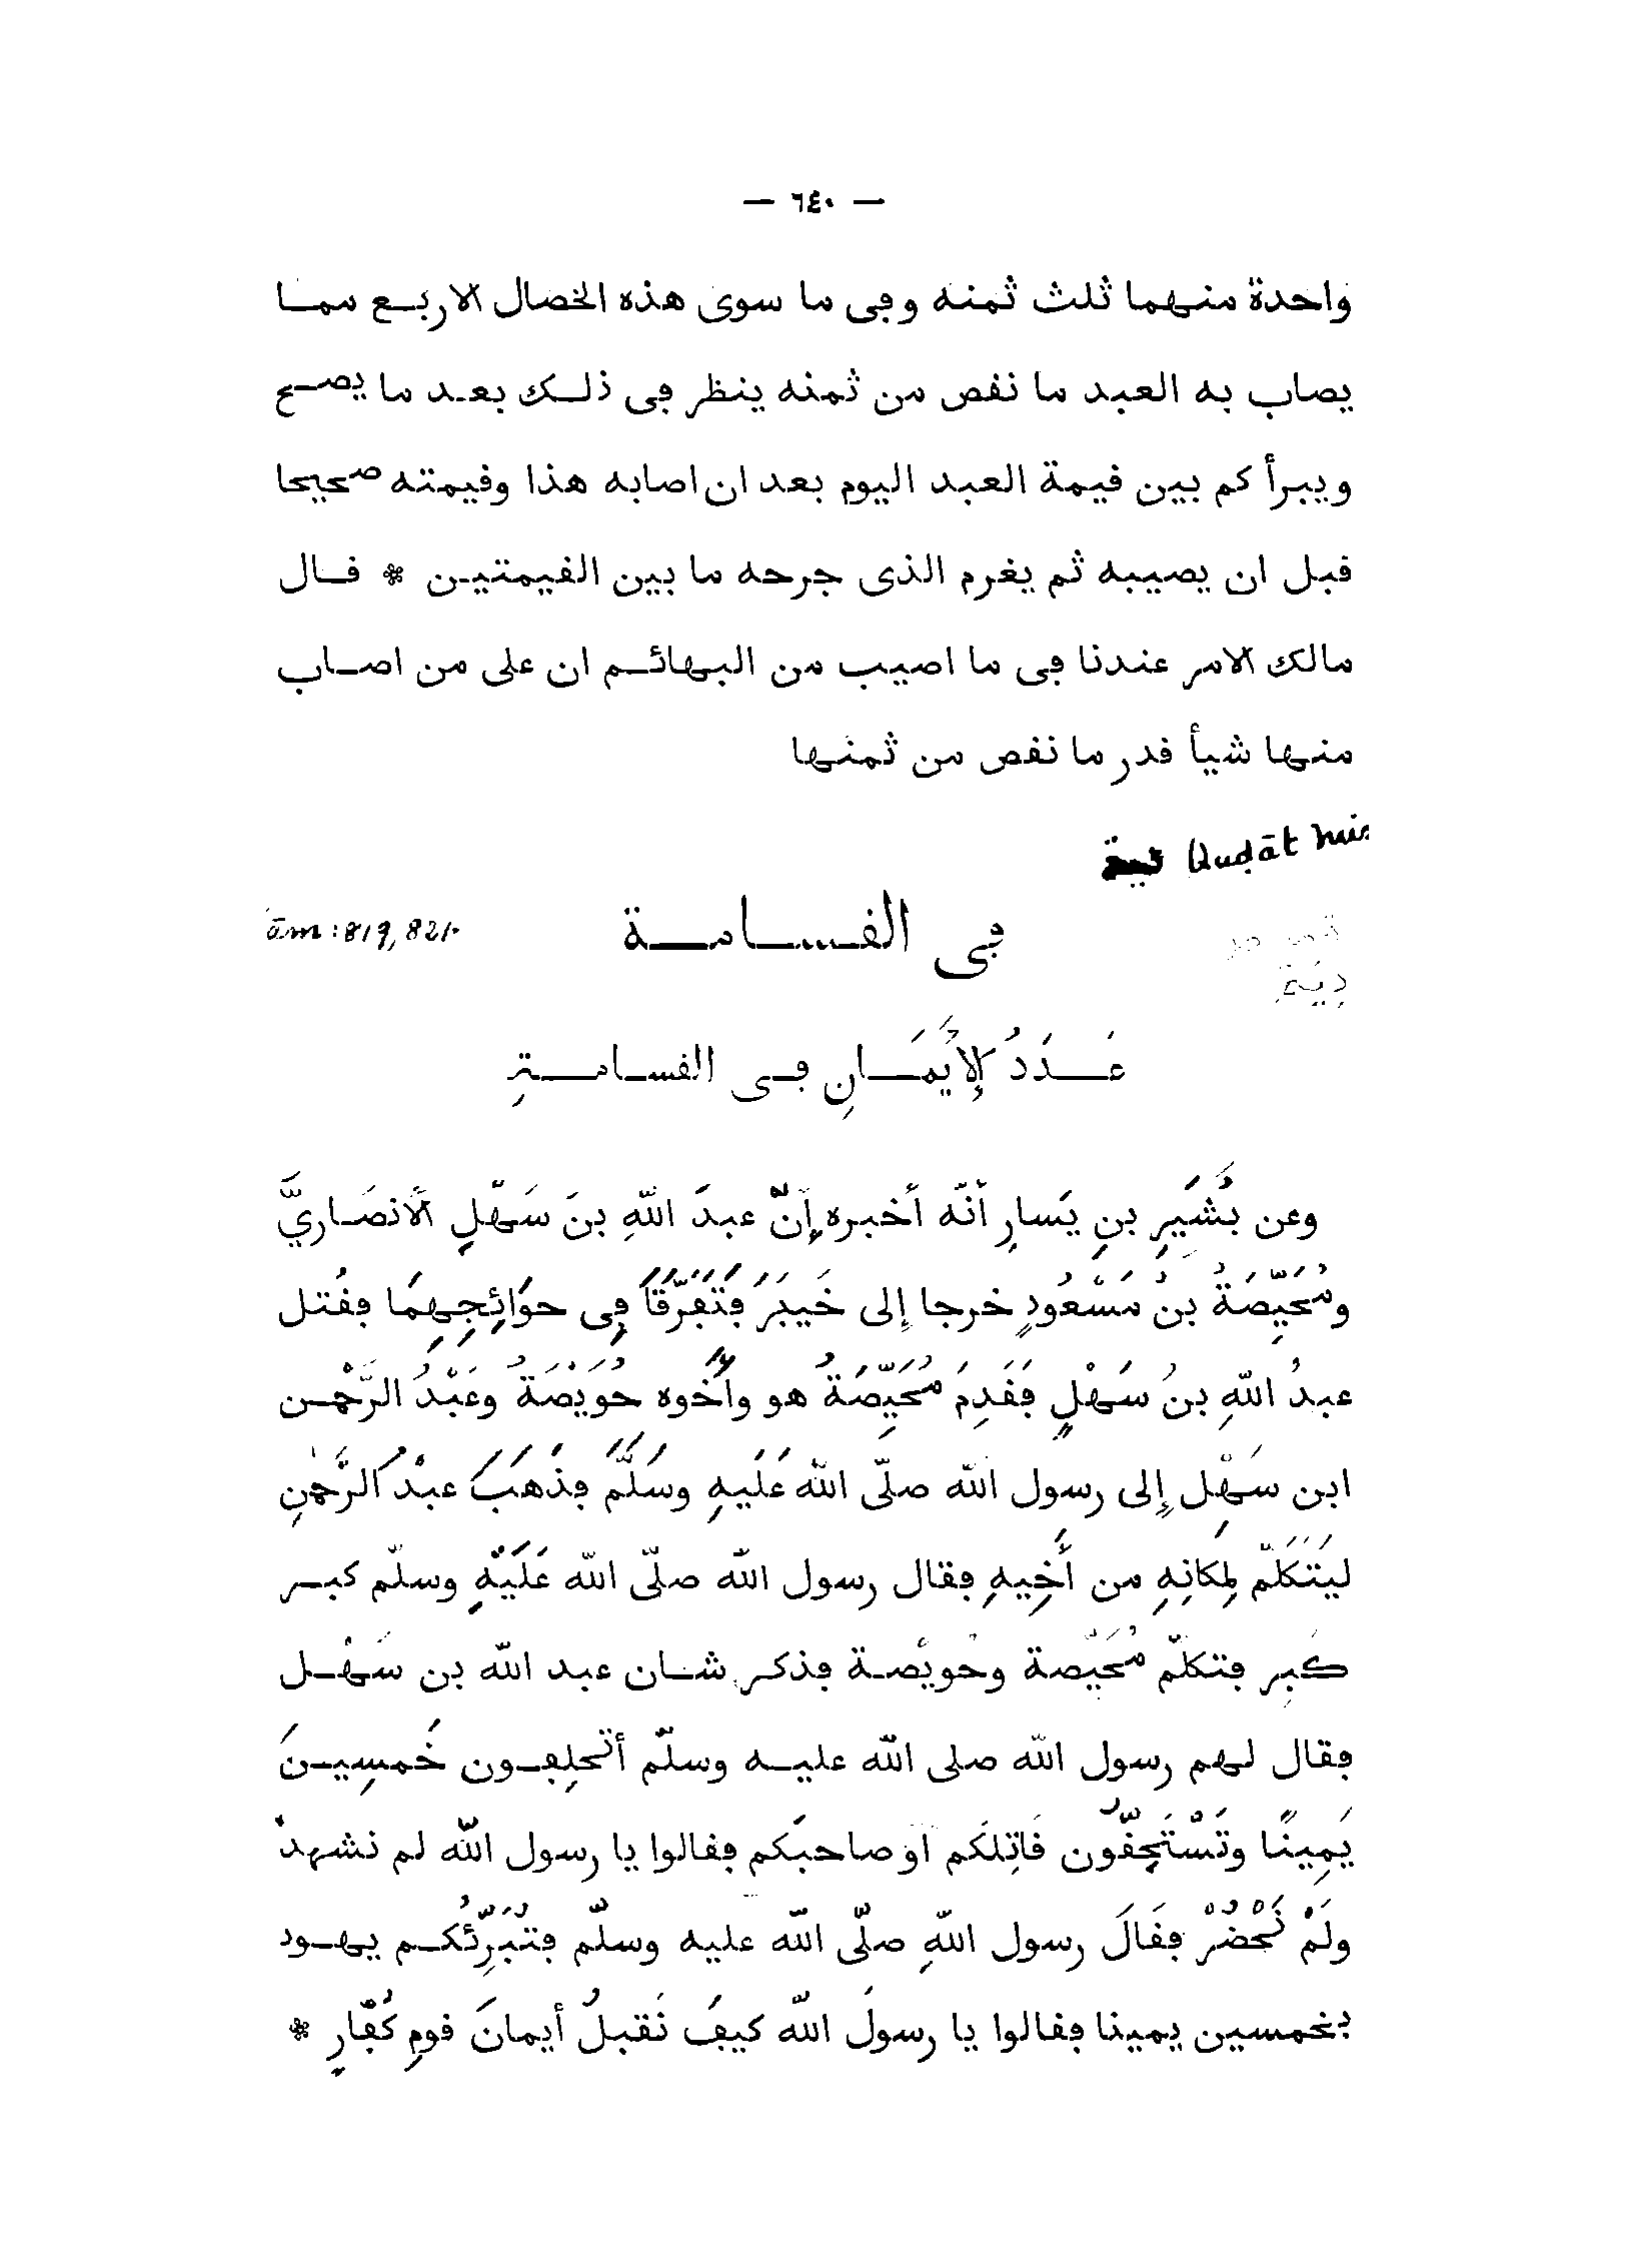 — ٦٤٠ —
واحدة منهما ثلث ثمنه وفى ما سوى هذه الخصال الاربع مما
يصاب به العبد ما نقص من ثمنه ينظر فى ذلك بعد ما يصح
ويبرأ كم بين قيمة العبد اليوم بعد ان اصابه هذا وقيمته صحيحا
قبل ان يصيبه ثم يغرم الذى جرحه ما بين القيمتين * قال
مالك الامر عندنا فى ما اصيب من البهائم ان على من اصاب
منها شيأ قدر ما نقص من ثمنها
Quḍāt
فى القسامة
ām : 819, 821.
دِيَة
عَدَدُ الأَيْمَانِ فى القسامةِ
وعن بُشَيرِ بنِ يَسارِ أنّه أخبره إنّ عبدَ اللّهِ بنَ سَهْلٍ الأنصَاريَّ
ومُحَيِّصَةُ بن مَسْعُودٍ خرجا إلى خَيبَرَ فَتَفَرّقَا فِى حوَائِجِهِمَا فقُتل
عبدُ اللّهِ بنُ سَهْلٍ فَقَدِمَ مُحَيِّصَةُ هو وأخوه حُوَيْصَةُ وعَبْدُ الرَّحْمن
ابن سَهْلٍ إلى رسول اللّه صلّى اللّه عَلَيهِ وسَلَّم فذهَبَ عبدُ الرَّحمنِ
ليَتَكَلّم لمِكانِهِ من أَخِيهِ فقال رسول اللّه صلّى اللّه عَلَيْهِ وسلّم كبر
كَبِر فتكلّم مُحَيّصة وحُويْصة فذكر شان عبد اللّه بن سَهْل
فقال لهم رسول اللّه صلى اللّه عليه وسلّم أتحلِفون خَمسِينَ
يَمِينًا وتَسْتَحِقّون قاتِلَكم أو صاحبَكم فقالوا يا رسول اللّه لم نشهدْ
ولَمْ نَحْضُرْ فقَالَ رسول اللّهِ صلّى اللّه عليه وسلّم فتُبَرِّئُكم يهود
بخمسين يمينا فقالوا يا رسولَ اللّه كيفَ نَقبلُ أيمانَ قومِ كُفّارٍ *